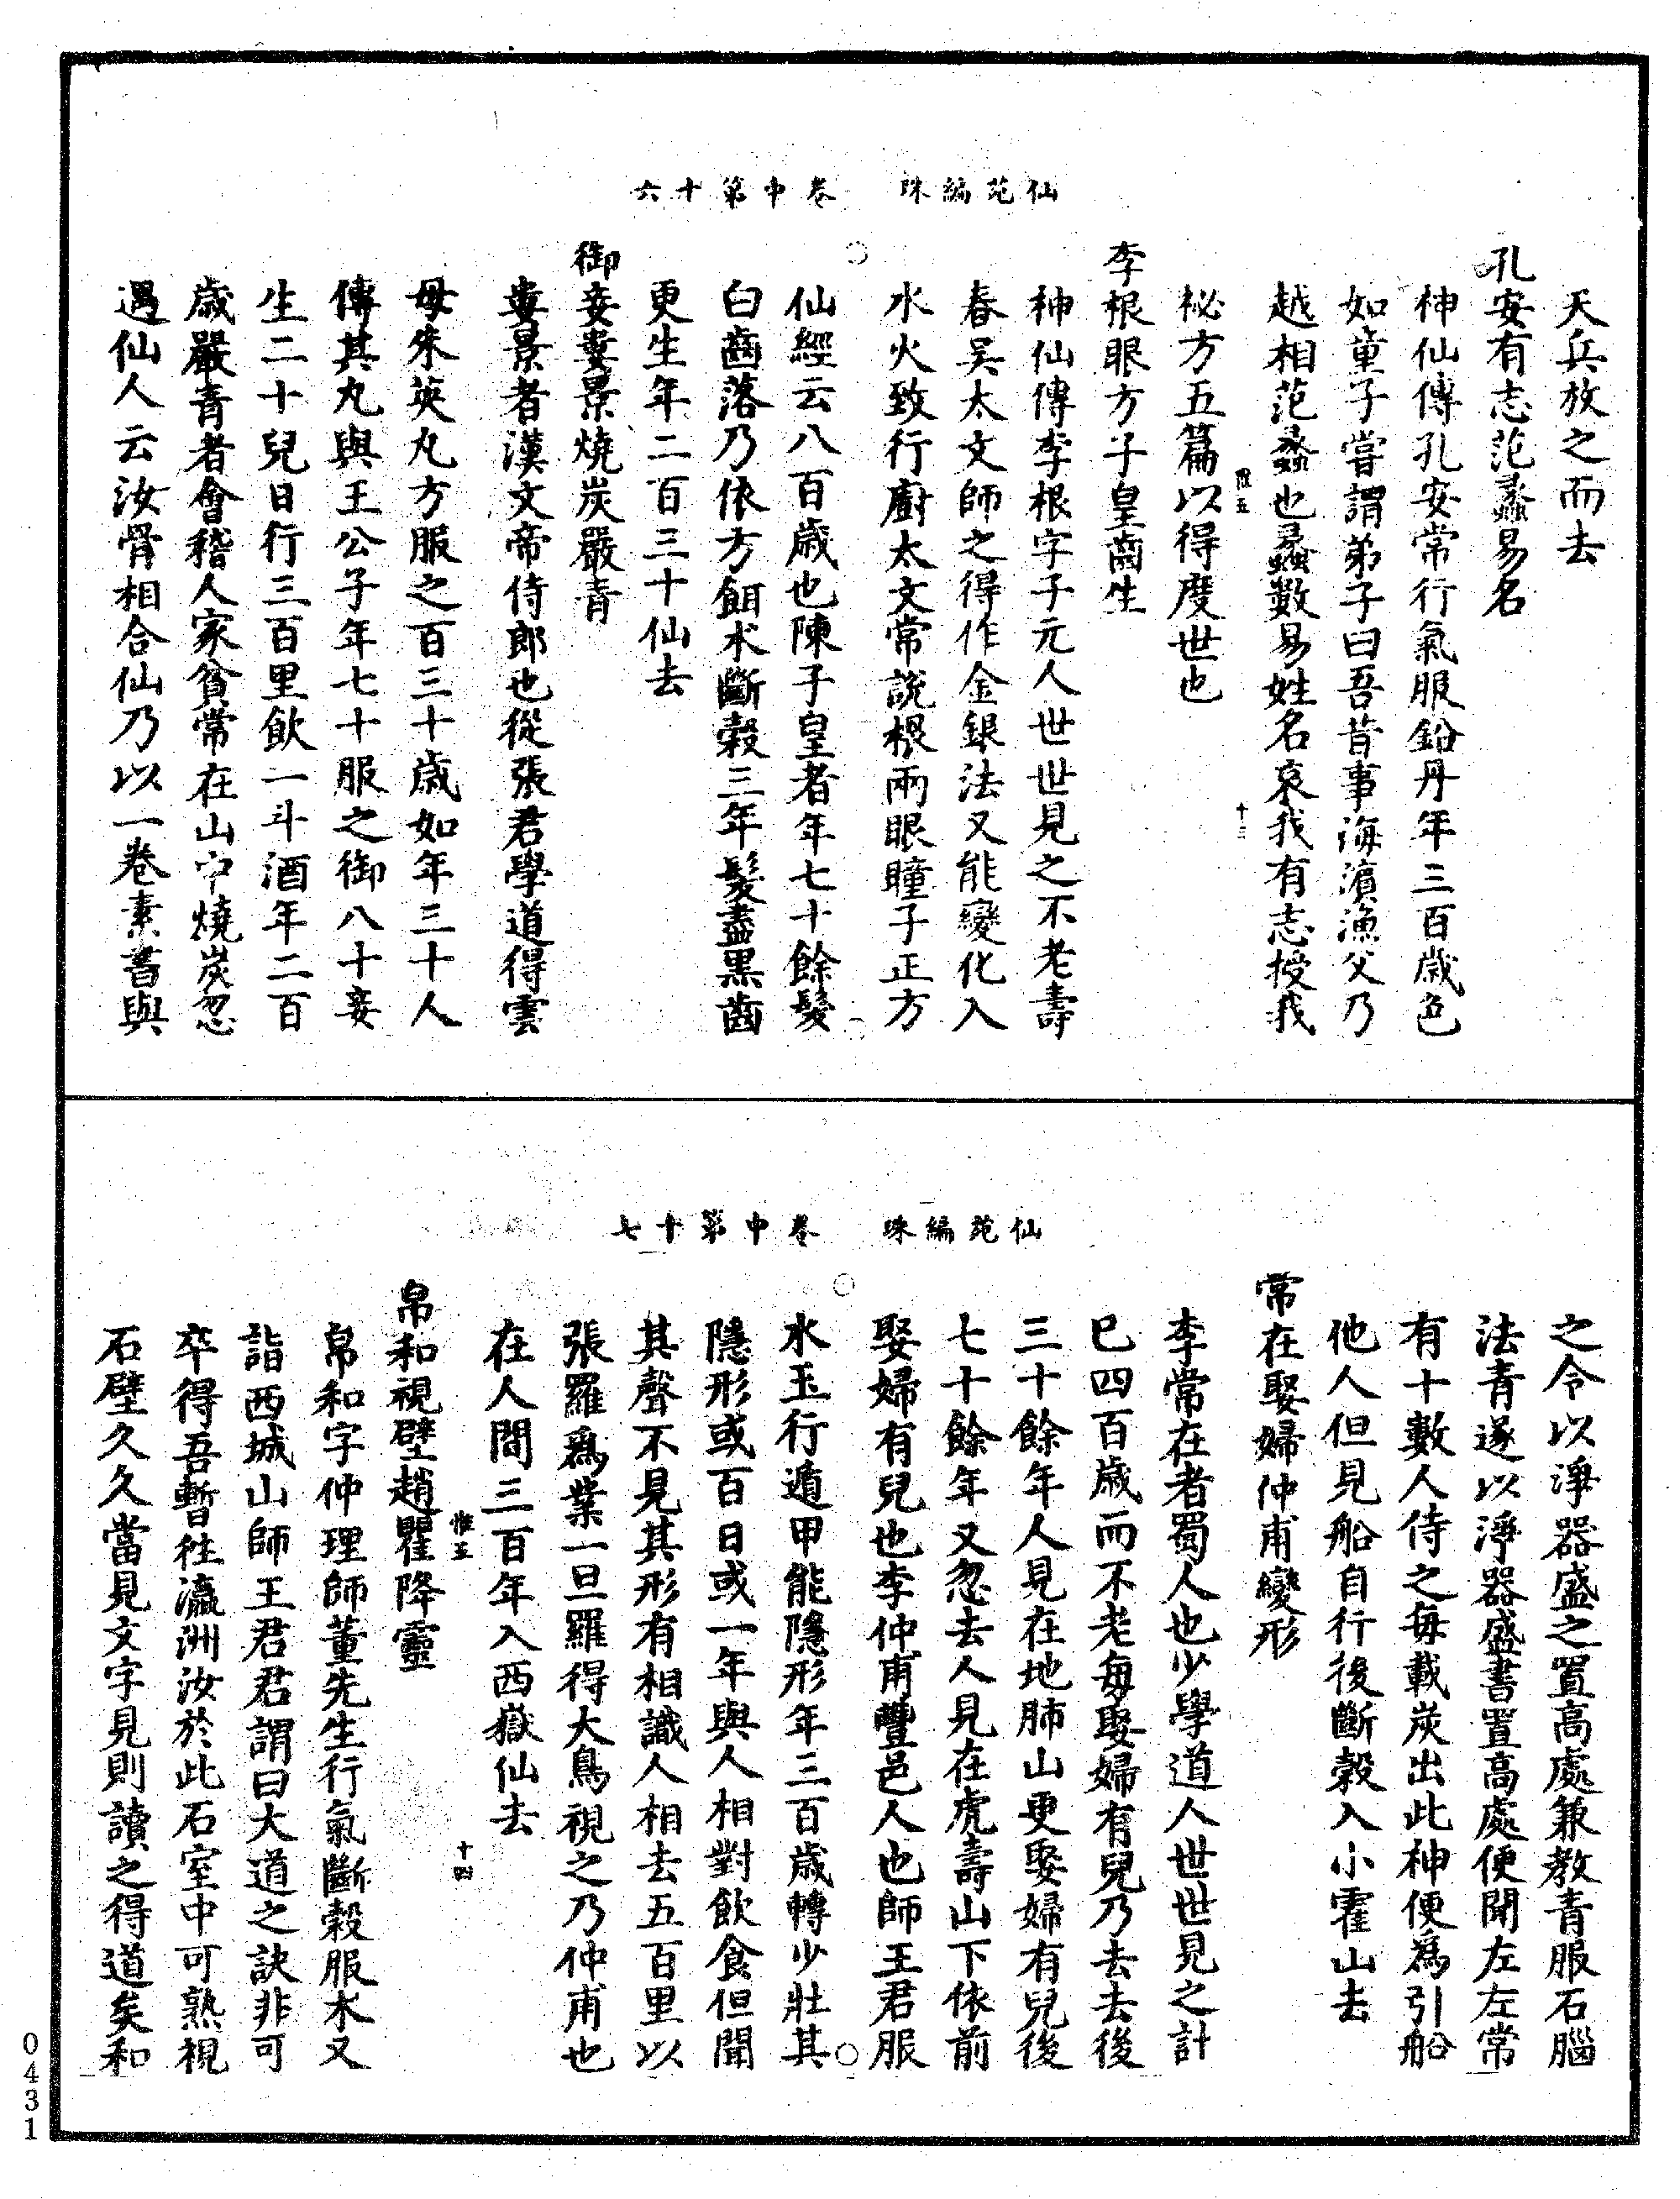 仙苑編珠　卷中第十六
天兵放之而去
孔安有志范蠡易名
神仙傳孔安常行氣服鉛丹年三百歲色
如童子嘗謂弟子曰吾昔事海濵漁父乃
越相范蠡也蠡數易姓名哀我有志授我
祕方五篇以得度世也
惟五　十三
李根眼方子皇齒生
神仙傳李根字子元人世世見之不老壽
春吳太文師之得作金銀法又能變化入
水火致行廚太文常說根兩眼瞳子正方
仙經云八百歲也陳子皇者年七十餘髮
白齒落乃依方餌术斷穀三年髮盡黑齒
更生年二百三十仙去
御妾婁景燒炭嚴青
婁景者漢文帝侍郎也從張君學道得雲
母朱英丸方服之百三十歲如年三十人
傳其丸與王公子年七十服之御八十妾
生二十兒日行三百里飲一斗酒年二百
歲嚴青者會稽人家貧常在山中燒炭忽
遇仙人云汝骨相合仙乃以一卷素書與
仙苑編珠　卷中第十七
之令以淨器盛之置高處兼教青服石腦
法青遂以淨器盛書置高處便聞左左常
有十數人侍之每載炭出此神便爲引船
他人但見船自行後斷穀入小霍山去
常在娶婦仲甫變形
李常在者蜀人也少學道人世世見之計
已四百歲而不老每娶婦有兒乃去去後
三十餘年人見在地肺山更娶婦有兒後
七十餘年又忽去人見在虎壽山下依前
娶婦有兒也李仲甫豐邑人也師王君服
水玉行遁甲能隱形年三百歲轉少壯其
隱形或百日或一年與人相對飲食但聞
其聲不見其形有相識人相去五百里以
張羅爲業一旦羅得大鳥視之乃仲甫也
在人間三百年入西嶽仙去
惟五　十四
帛和視壁趙瞿降靈
帛和字仲理師董先生行氣斷穀服朮又
詣西城山師王君君謂曰大道之訣非可
卒得吾暫往瀛洲汝於此石室中可熟視
石壁久久當見文字見則讀之得道矣和
0431